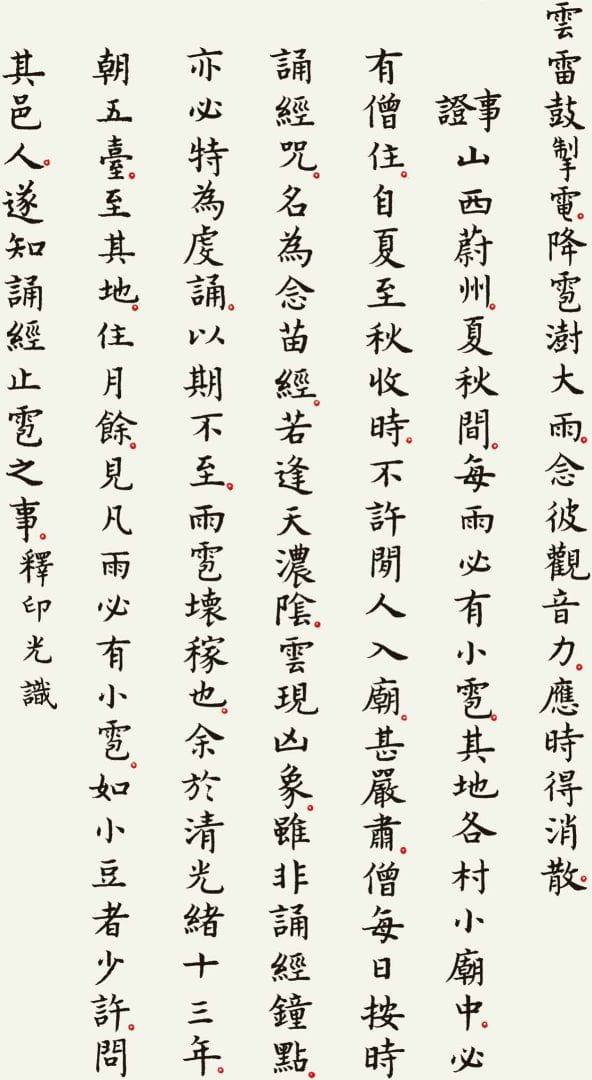 雲雷鼓掣電。降雹澍大雨。念彼觀音力。應時得消散。
事證山西蔚州。夏秋間。每雨必有小雹。其地各村小廟中。必
有僧住。自夏至秋收時。不許閒人入廟。甚嚴肅。僧每日按時
誦經咒。名為念苗經。若逢天濃陰。雲現凶象。雖非誦經鐘點。
亦必特為虔誦。以期不至。雨雹壞稼也。余於清光緒十三年。
朝五臺。至其地。住月餘。見凡雨必有小雹。如小豆者少許。問
其邑人。遂知誦經止雹之事。釋印光識